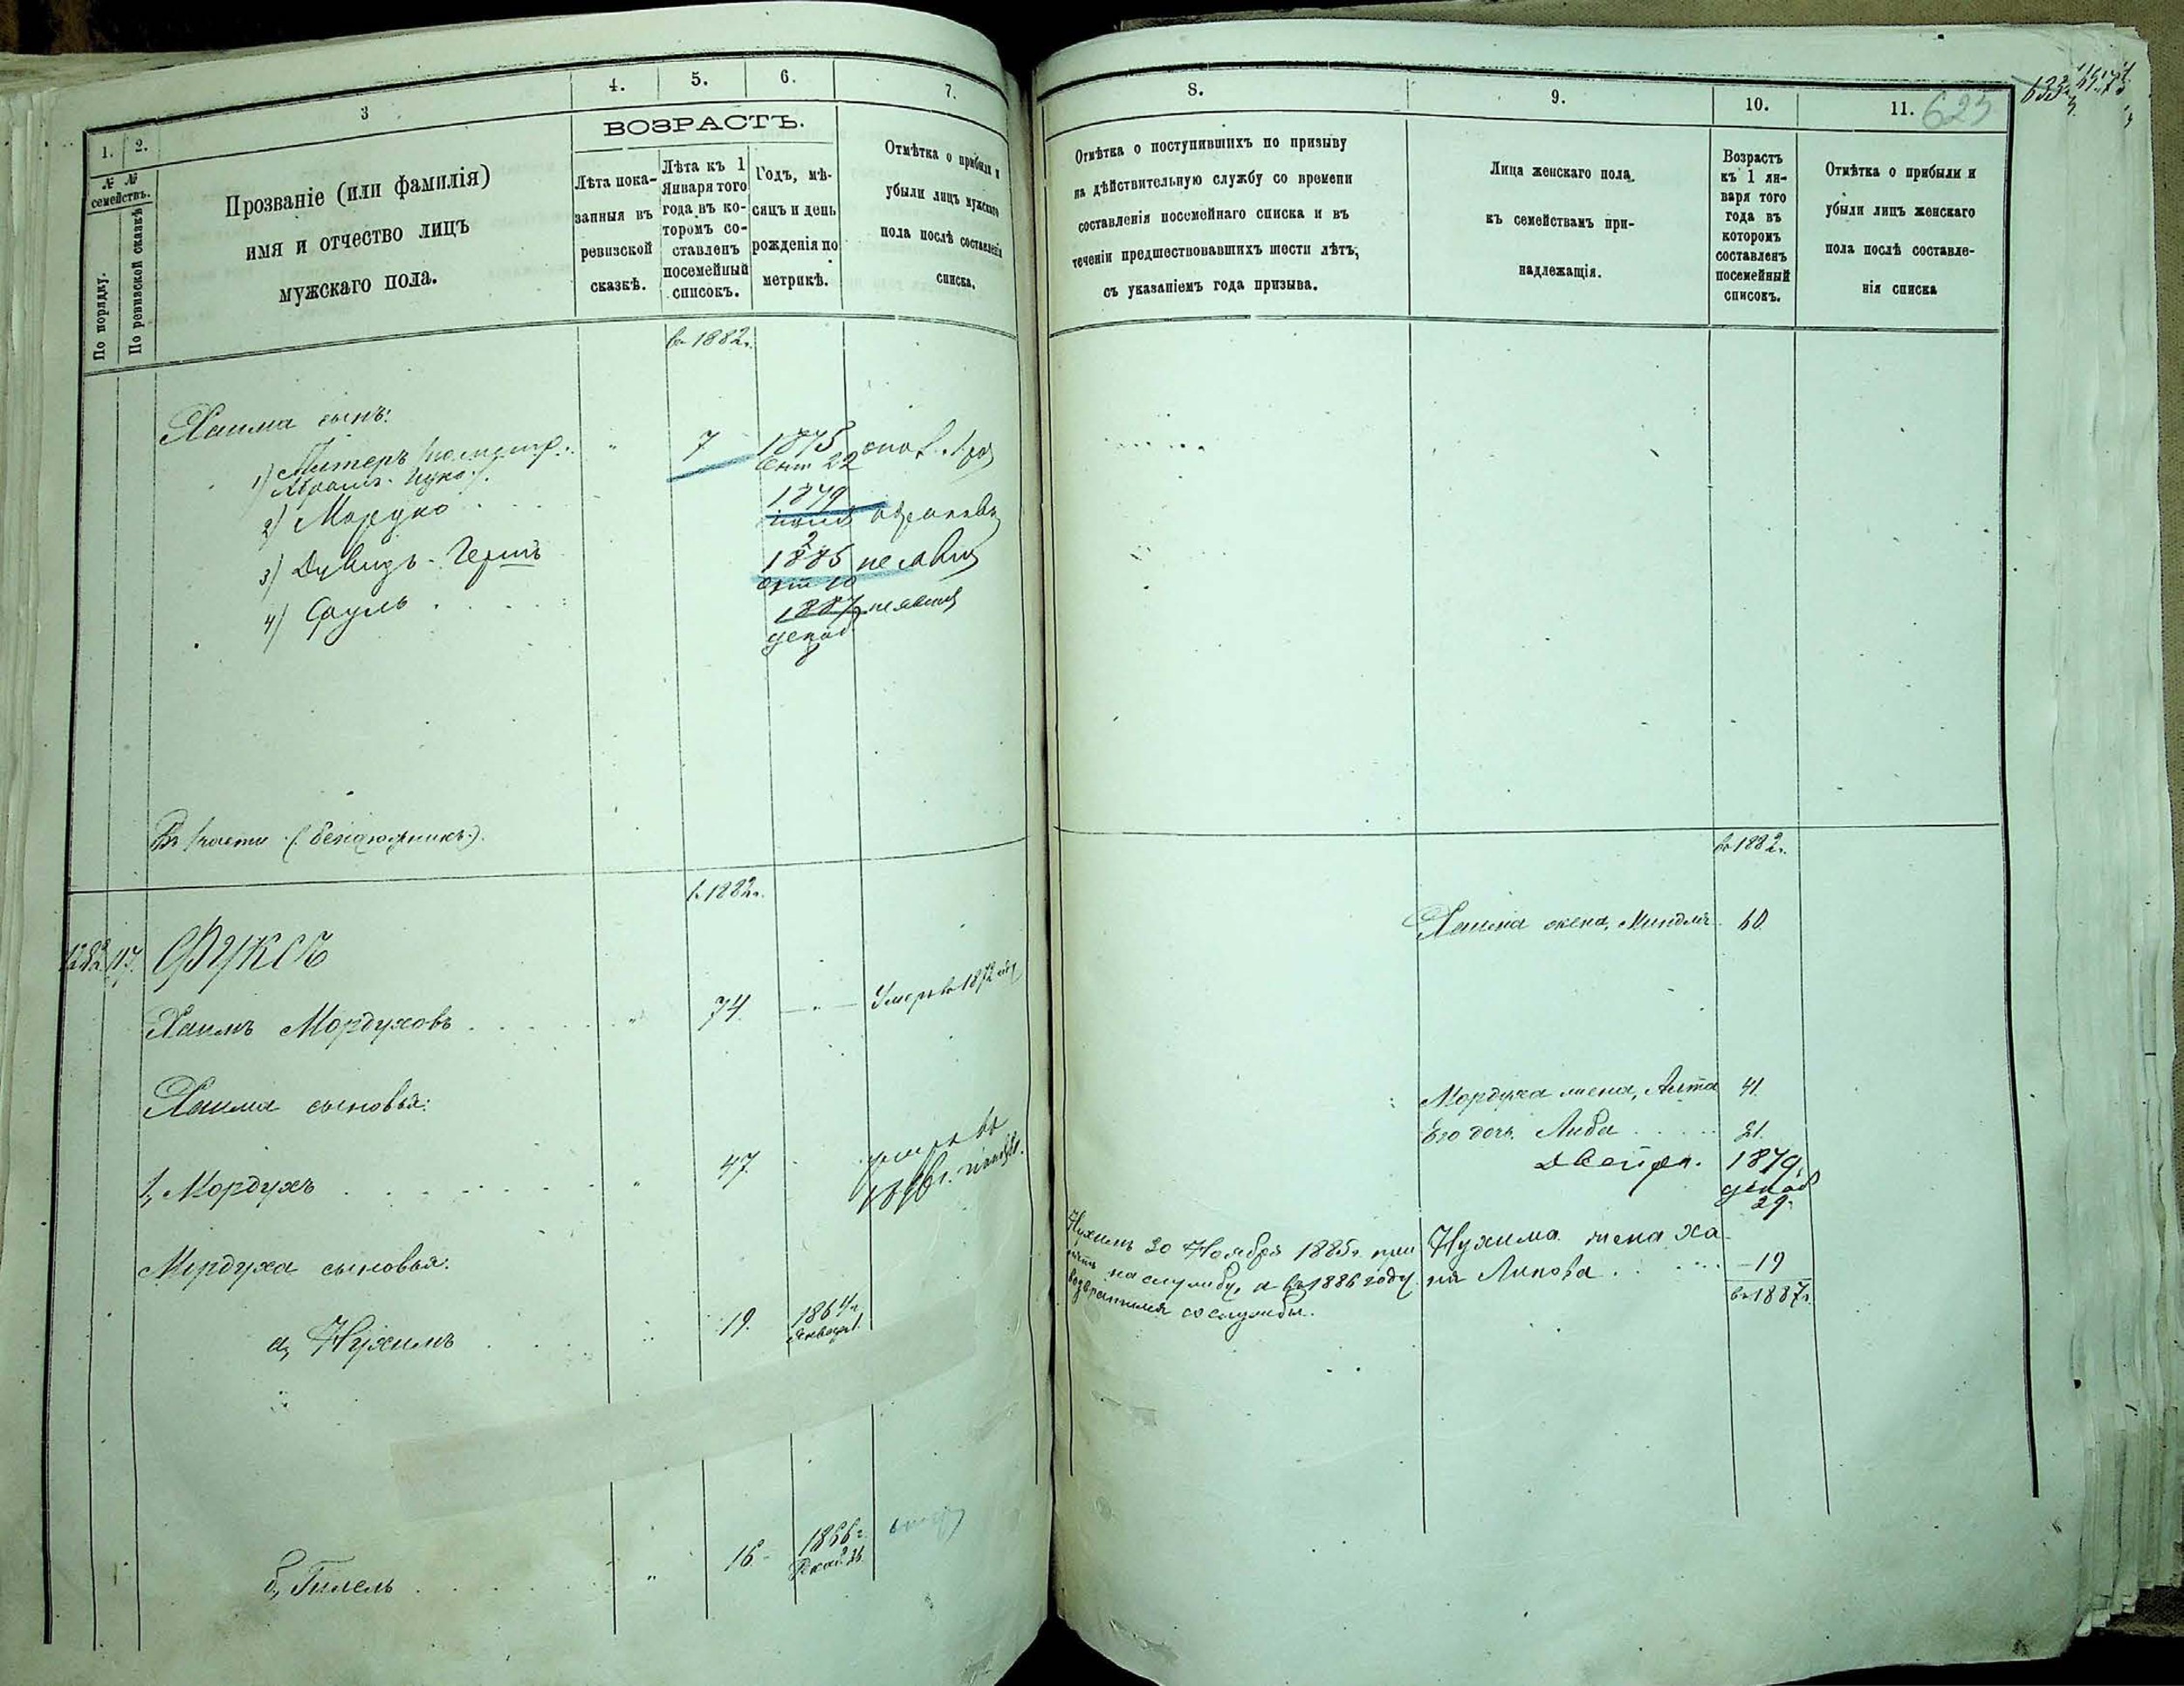 1.
2.
3
4.
5.
6.
7.
№ №
семействъ.
По порядку.
По ревизской сказкѣ
Прозваніе (или фамилія)
имя и отчество лицъ
мужскаго пола.
ВОЗРАСТЪ.
Лѣта пока-
занныя въ
ревизской
сказкѣ.
Лѣта къ 1
Января того
года въ ко-
торомъ со-
ставленъ
посемейный
списокъ.
Годъ, мѣ-
сяцъ и день
рожденія по
метрикѣ.
Отмѣтка о прибыли и
убыли лицъ мужскаго
пола послѣ составленія
списка.
въ 1882г.
Хаима сынъ:
1)
" 7 1875
Сент 22
2) Мордко
1879
3) Дувидъ-Гершъ
1885 не явил
Сент 10
4) Сруль
1887 не явил
декаб
въ 1882г.
1282 117. ФУКСЪ
Хаимъ Мордуховъ " 74. — " — Умеръ въ 1872 году
Хаима сыновья:
1, Мордухъ " 47. умеръ въ
Мордуха сыновья:
а, Нухимъ " 19. 1864г.
Января 1.
б, Гилель " 16. 1866г.
Декаб. 26
8.
9.
10.
11.
623
Отмѣтка о поступившихъ по призыву
на дѣйствительную службу со времени
составленія посемейнаго списка и въ
теченіи предшествовавшихъ шести лѣтъ,
съ указаніемъ года призыва.
Лица женскаго пола
къ семействамъ при-
надлежащія.
Возрастъ
къ 1 ян-
варя того
года въ
которомъ
составленъ
посемейный
списокъ.
Отмѣтка о прибыли и
убыли лицъ женскаго
пола послѣ составле-
нія списка
въ 1882г.
Хаима жена, Миндля 60.
Мордуха жена, 41.
Его дочь Люба 21.
Двейра. 1879г.
декаб
29.
Нухимъ 30 Ноября 1885г. при
нятъ на службу, а въ 1886 году
возвратился со службы.
Нухима жена Ха-
ія Липова —19
въ 1887г.